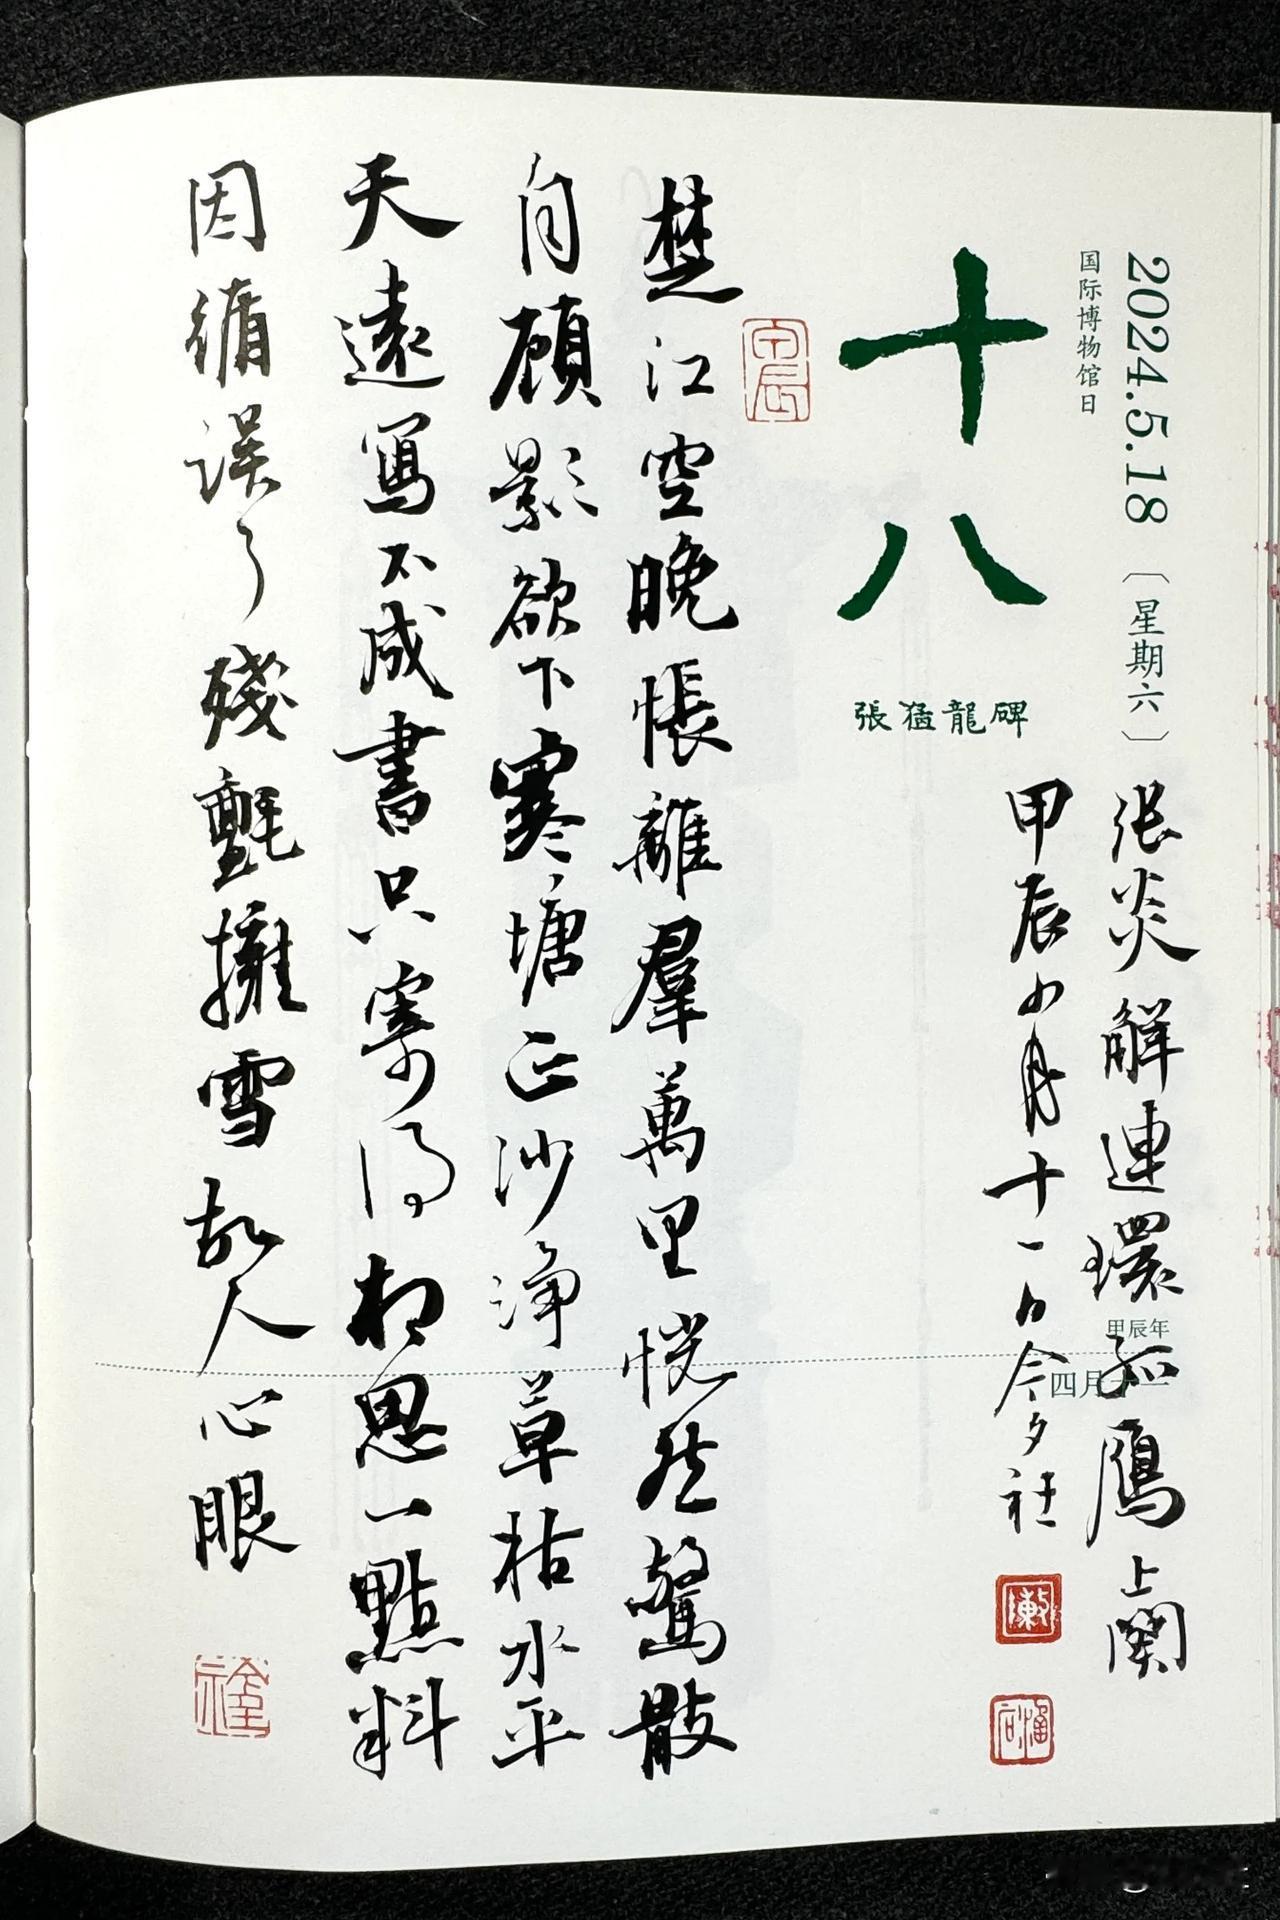 2024.5.18〔星期六〕
国际博物馆日
十八
張猛龍碑
甲辰年
四月十一
张炎解連環孤鴈上闋
甲辰四月十一日今夕社
楚江空晚悵離羣萬里恍然驚散
自顧影欲下寒塘正沙淨草枯水平
天遠寫不成書只寄得相思一點料
因循误了殘氈擁雪故人心眼